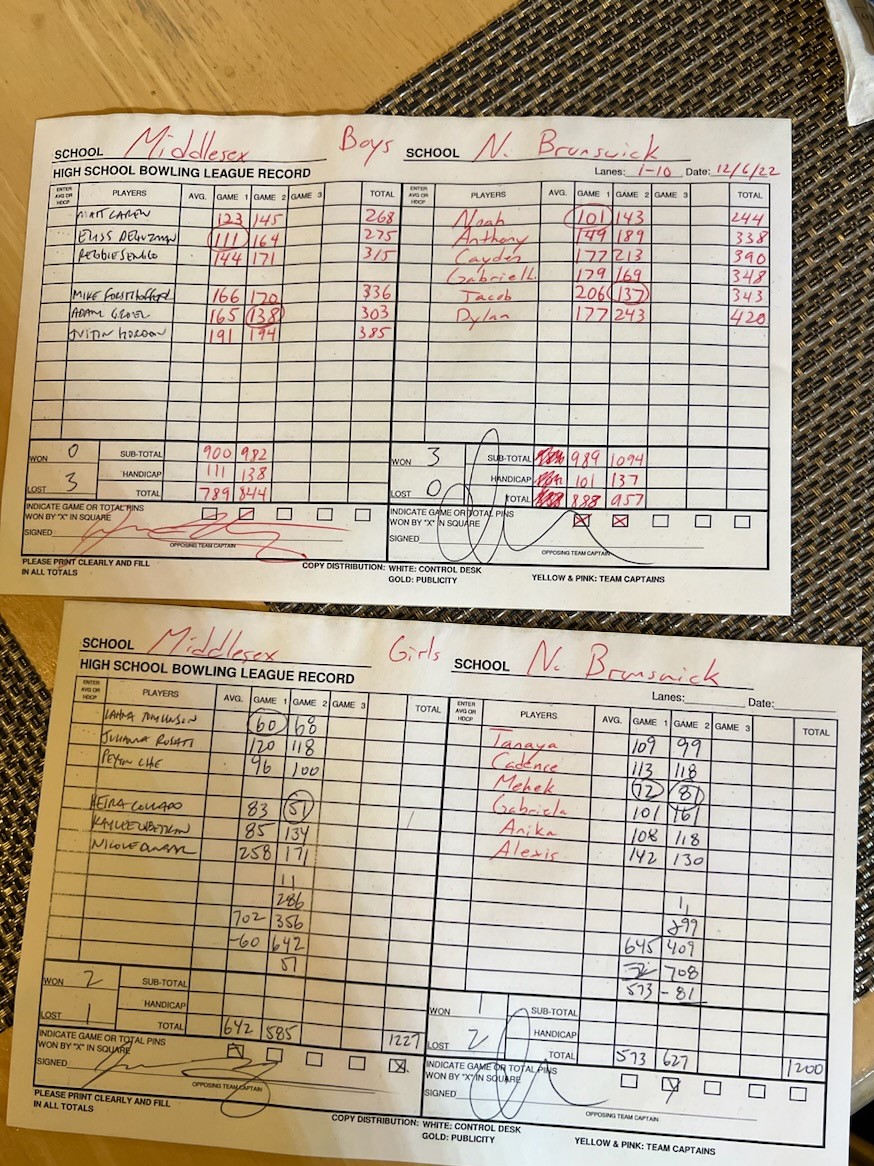 SCHOOL Middlesex Boys SCHOOL N. Brunswick
HIGH SCHOOL BOWLING LEAGUE RECORD Lanes: 1-10 Date: 12/6/22
ENTER AVG OR HDCP PLAYERS AVG. GAME 1 GAME 2 GAME 3 TOTAL ENTER AVG OR HDCP PLAYERS AVG. GAME 1 GAME 2 GAME 3 TOTAL
123 145 268 Noah 101 143 244
111 164 275 Anthony 149 189 338
144 171 315 Cayden 177 213 390
Gabriel L. 179 169 348
MIKE 166 170 336 Jacob 206 137 343
ADAM 165 138 303 Dylan 177 243 420
JUSTIN 191 194 385
WON 0 SUB-TOTAL 900 982 WON 3 SUB-TOTAL 989 1094
HANDICAP 111 138 HANDICAP 101 137
LOST 3 TOTAL 789 844 LOST 0 TOTAL 888 957
INDICATE GAME OR TOTAL PINS WON BY "X" IN SQUARE INDICATE GAME OR TOTAL PINS WON BY "X" IN SQUARE
SIGNED SIGNED
OPPOSING TEAM CAPTAIN OPPOSING TEAM CAPTAIN
PLEASE PRINT CLEARLY AND FILL IN ALL TOTALS COPY DISTRIBUTION: WHITE: CONTROL DESK
GOLD: PUBLICITY YELLOW & PINK: TEAM CAPTAINS
SCHOOL Middlesex Girls SCHOOL N. Brunswick
HIGH SCHOOL BOWLING LEAGUE RECORD Lanes: Date:
ENTER AVG OR HDCP PLAYERS AVG. GAME 1 GAME 2 GAME 3 TOTAL ENTER AVG OR HDCP PLAYERS AVG. GAME 1 GAME 2 GAME 3 TOTAL
60 60 Tanaya 109 99
JULIANA ROSATI 120 118 Cadence 113 118
96 100 Mehek 72 81
Gabriela 101 161
83 51 Anika 108 118
85 134 Alexis 142 130
NICOLE 258 171
11
286
702 356 299
-60 642 645 409
51 708
573 - 81
WON 2 SUB-TOTAL WON 1 SUB-TOTAL
HANDICAP HANDICAP
LOST 1 TOTAL 642 585 1227 LOST 2 TOTAL 573 627 1200
INDICATE GAME OR TOTAL PINS WON BY "X" IN SQUARE INDICATE GAME OR TOTAL PINS WON BY "X" IN SQUARE
SIGNED SIGNED
OPPOSING TEAM CAPTAIN OPPOSING TEAM CAPTAIN
PLEASE PRINT CLEARLY AND FILL IN ALL TOTALS COPY DISTRIBUTION: WHITE: CONTROL DESK
GOLD: PUBLICITY YELLOW & PINK: TEAM CAPTAINS